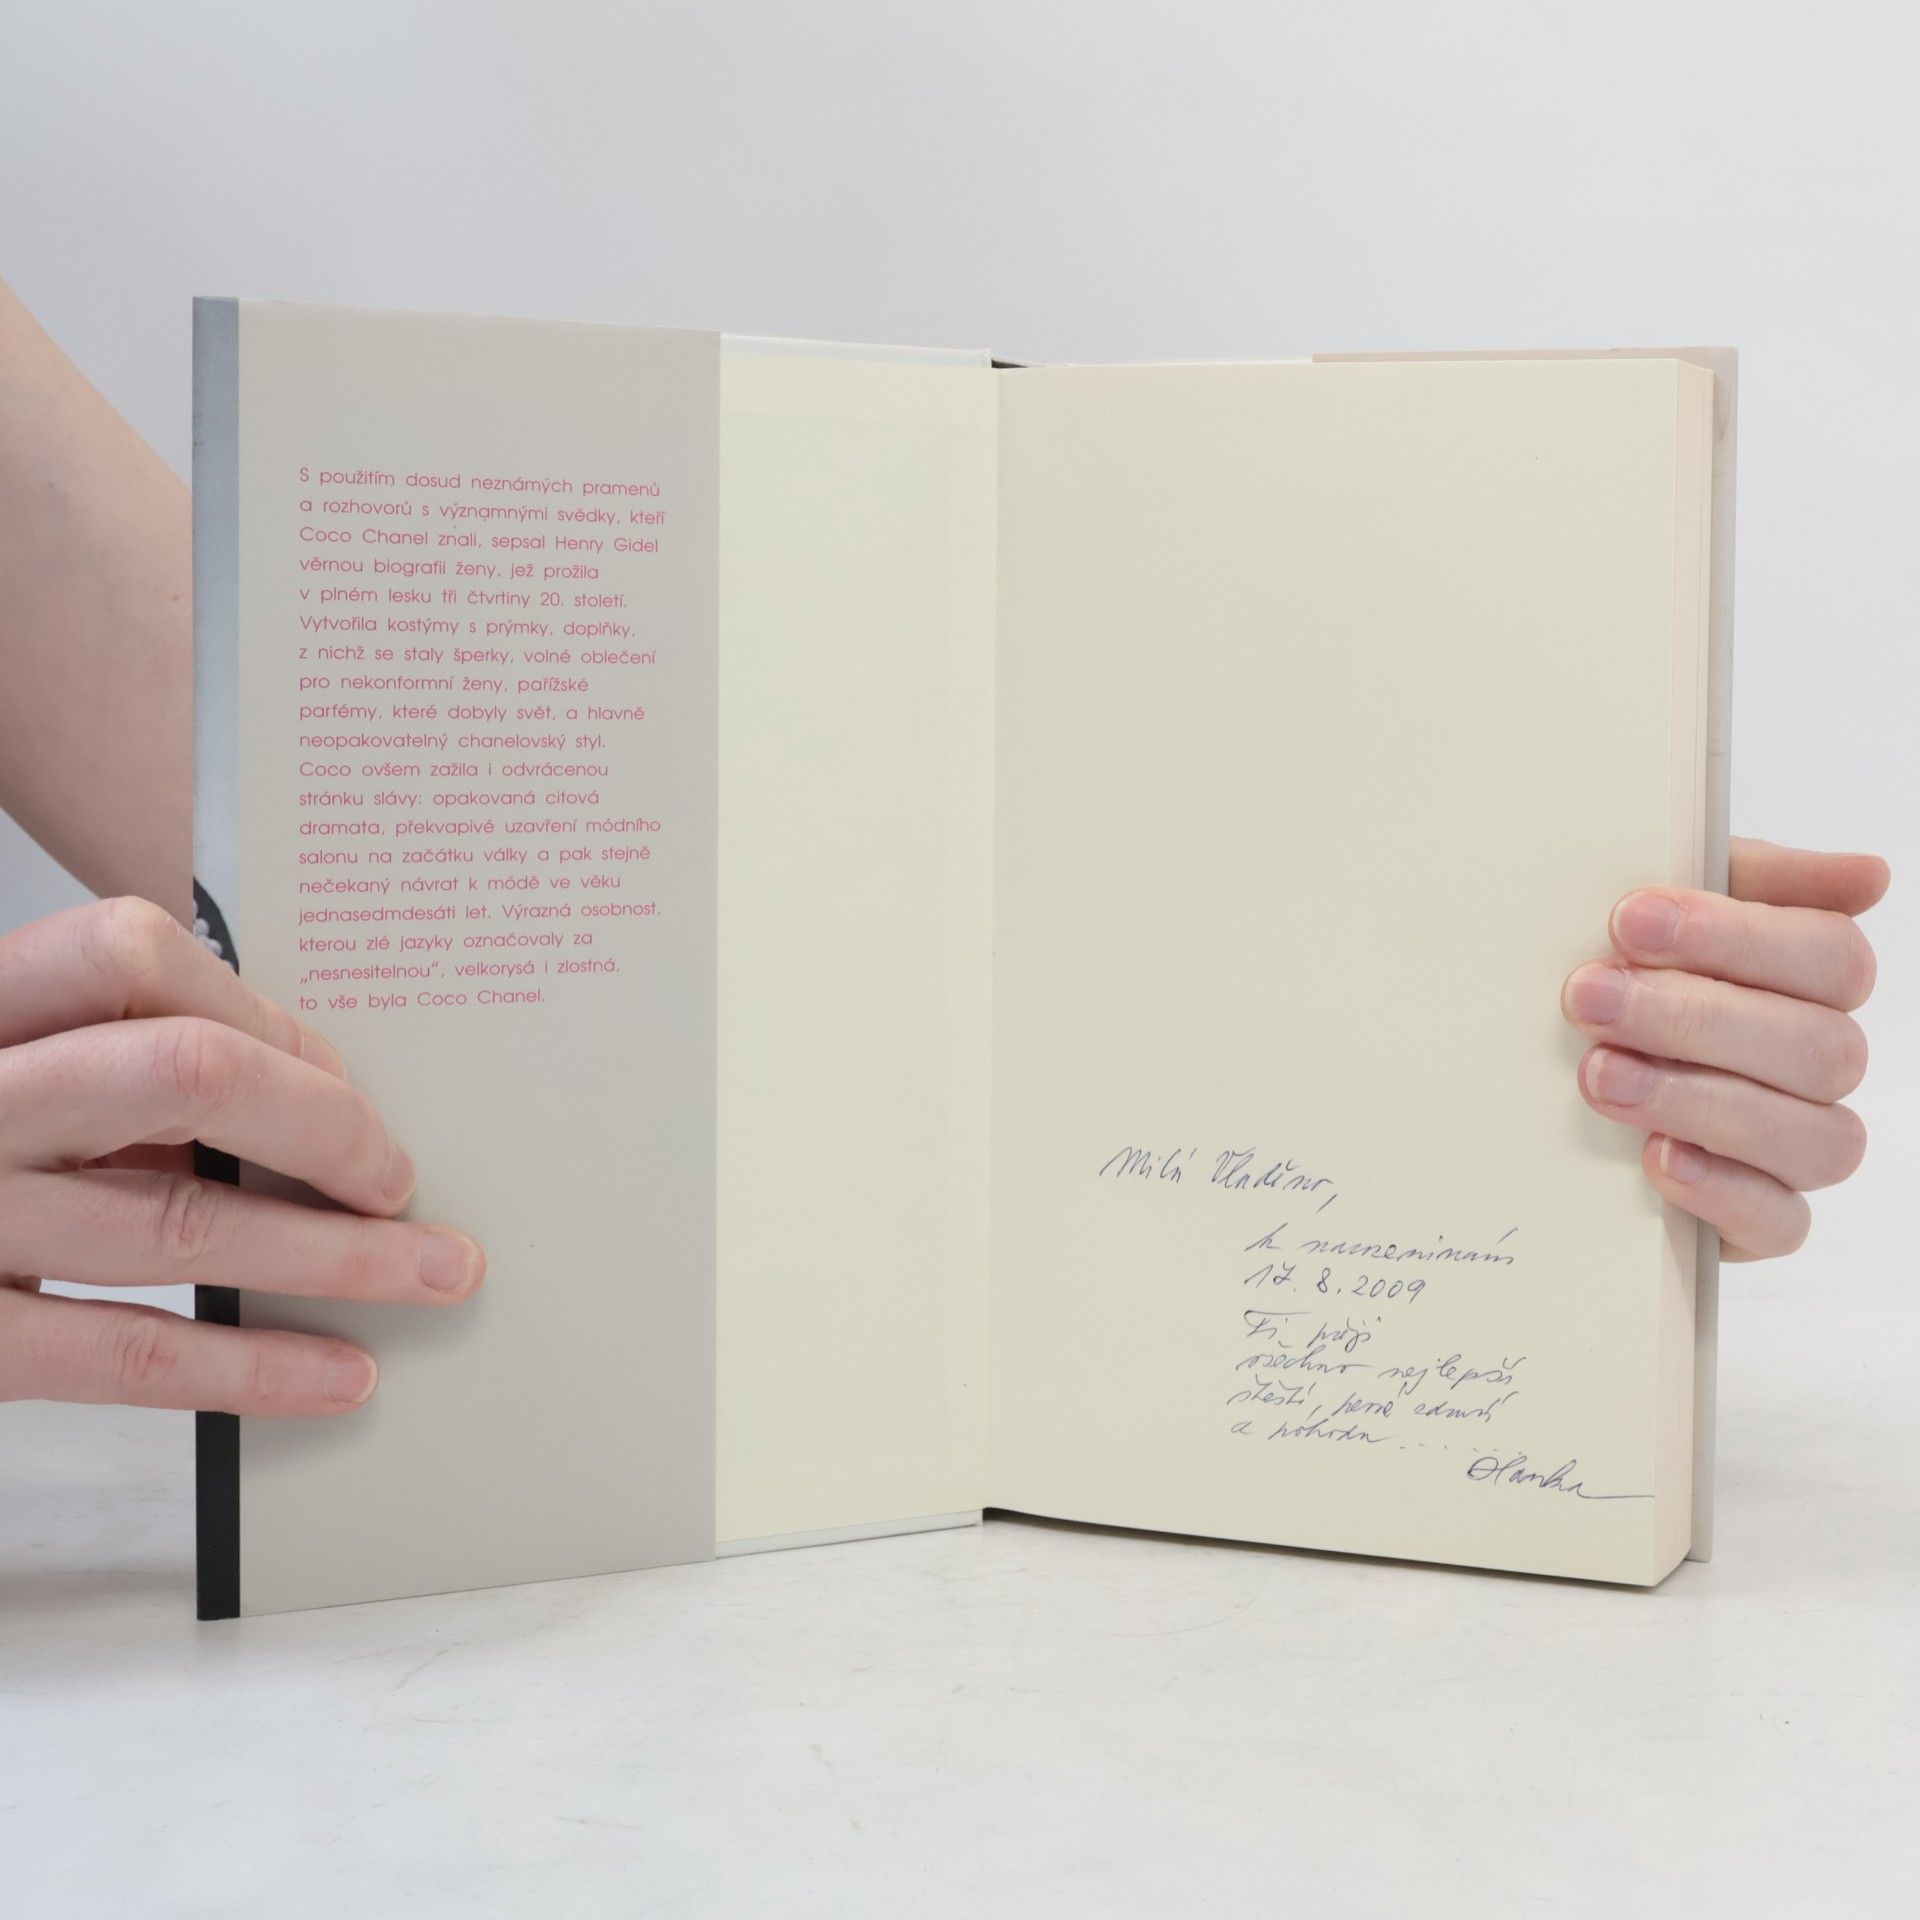 S použitím dosud neznámých pramenů
a rozhovorů s významnými svědky, kteří
Coco Chanel znali, sepsal Henry Gidel
věrnou biografii ženy, jež prožila
v plném lesku tři čtvrtiny 20. století.
Vytvořila kostýmy s prýmky, doplňky,
z nichž se staly šperky, volné oblečení
pro nekonformní ženy, pařížské
parfémy, které dobyly svět, a hlavně
neopakovatelný chanelovský styl.
Coco ovšem zažila i odvrácenou
stránku slávy: opakovaná citová
dramata, překvapivé uzavření módního
salonu na začátku války a pak stejně
nečekaný návrat k módě ve věku
jednasedmdesáti let. Výrazná osobnost,
kterou zlé jazyky označovaly za
„nesnesitelnou“, velkorysá i zlostná,
to vše byla Coco Chanel.
Milá Vladěno,
k narozeninám
17. 8. 2009
Ti přeji
všechno nejlepší
štěstí, pevné zdraví
a pohodu . . . . . .
Hanka